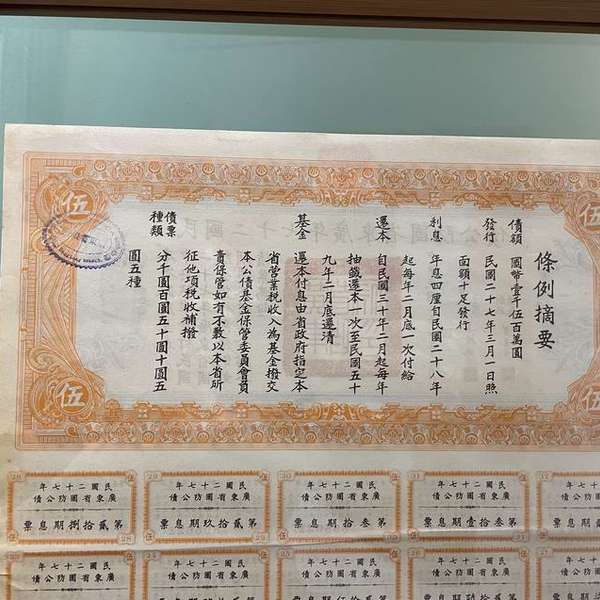 條例摘要
債額 國幣壹千伍百萬圓
發行 民國二十七年三月一日照
面額十足發行
利息 年息四厘自民國二十八年
起每年二月底一次付給
還本 自民國三十年二月起每年
抽籤還本一次至民國五十
九年二月底還清
基金 還本付息由省政府指定本
省營業稅收入為基金撥交
本公債基金保管委員會員
責保管如有不敷以本省所
徵他項稅收補撥
債票種類 分千圓百圓五十圓十圓五
圓五種
伍
伍
伍
伍
28 29 30 31
民國二十七年
廣東省國防公債
第貳拾捌期息票
28
民國二十七年
廣東省國防公債
第貳拾玖期息票
29
民國二十七年
廣東省國防公債
第叁拾期息票
民國二十七年
廣東省國防公債
第叁拾壹期息票
民國二十七年
廣東省國防公債
民國二十七年
廣東省國防公債
民國二十七年
廣東省國防公債
民國二十七年
廣東省國防公債